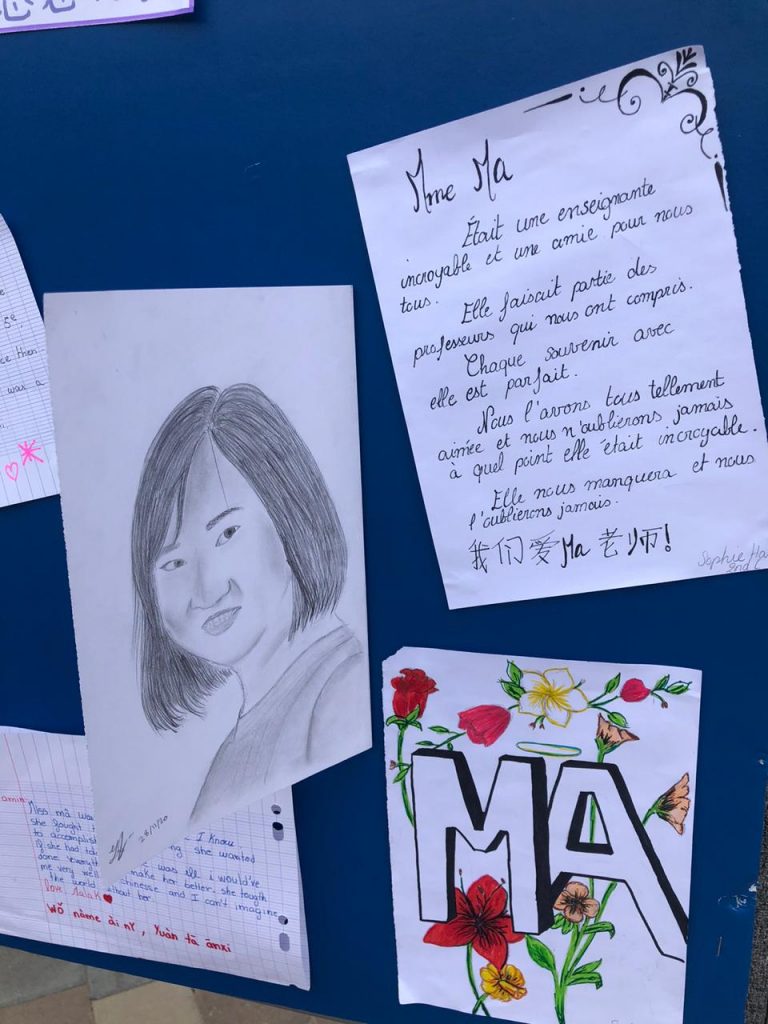 5e,
ce then
was a
Mme Ma
Était une enseignante
incroyable et une amie pour nous
tous.
Elle faisait partie des
professeurs qui nous ont compris.
Chaque souvenir avec
elle est parfait.
Nous l'avons tous tellement
aimée et nous n'oublierons jamais
à quel point elle était incroyable.
Elle nous manquera et nous
l'oublierons jamais.
我们爱Ma老师!
Sophie
2nd
28/11/20
MA
amin
Miss mâ wa
she fought I know
to accomplish ng she wanted
if she had
done was ill i would've
me very well make her better. she tough
the world chinesse and I can't imagine
love Malak thout her
wǒ nàme ài nǐ, Yuàn tā ānxi